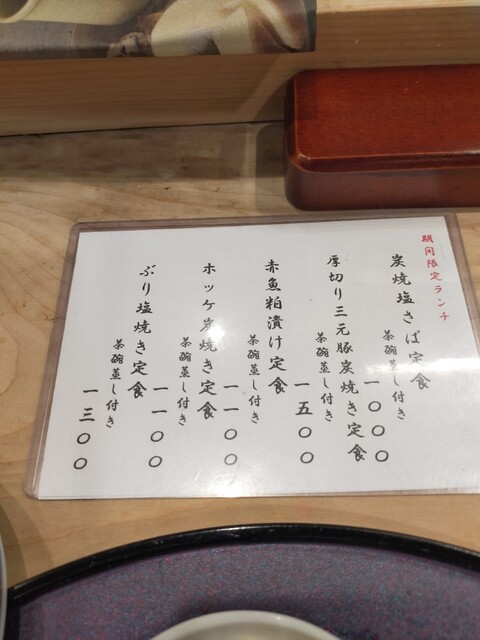 期間限定ランチ
炭焼塩さば定食
茶碗蒸し付き
一〇〇〇
厚切り三元豚炭焼き定食
茶碗蒸し付き
一五〇〇
赤魚粕漬け定食
茶碗蒸し付き
一一〇〇
ホッケ炭焼き定食
茶碗蒸し付き
一一〇〇
ぶり塩焼き定食
茶碗蒸し付き
一三〇〇